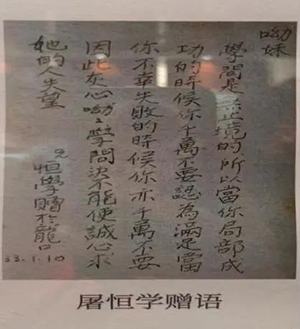 呦妹
學問是無止境的所以當你局部成
功的時候你千萬不要認為滿足當
你不幸失敗的時候你亦千萬不要
因此灰心呦呦學問決不能使誠心求
她的人失望
兄
恒學贈於龍口
33.1.10
屠恒学赠语